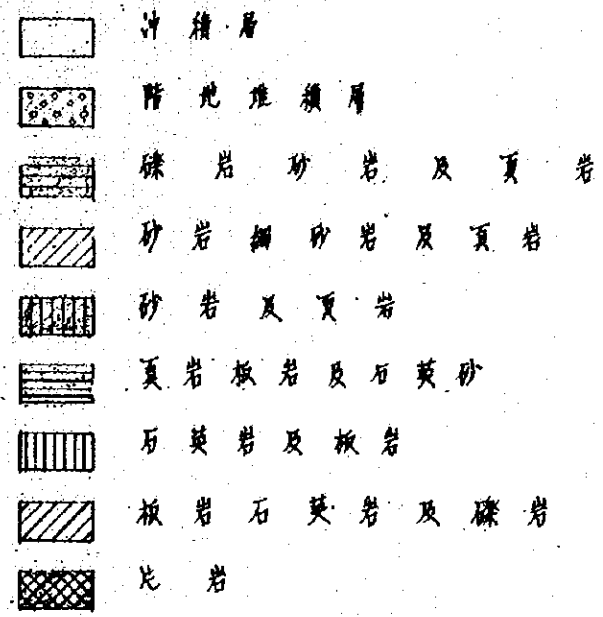 沖積層
階地堆積層
礫岩砂岩及頁岩
砂岩細砂岩及頁岩
砂岩及頁岩
頁岩板岩及石英砂
石英岩及板岩
板岩石英岩及礫岩
片岩